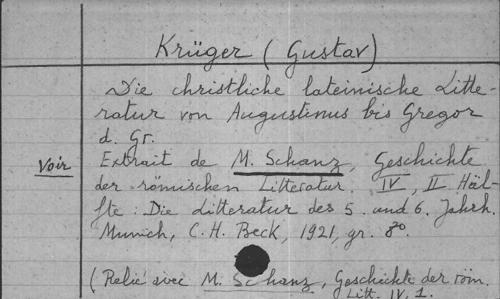 Krüger (Gustav)
Die christliche lateinische Litte-
ratur von Augustinus bis Gregor
d. Gr.
Voir Extrait de M. Schanz, Geschichte
der römischen Litteratur. IV, II Häl-
fte : Die Litteratur des 5. und 6. Jahrh.
Munich, C. H. Beck, 1921, gr. 8o.
(Relié avec M. Schanz, Geschichte der röm.
Litt. IV, 1.